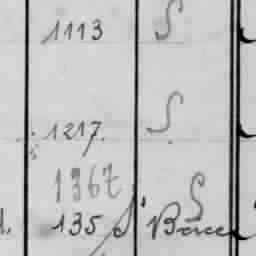 1113 S
1217. S
1367 S
135